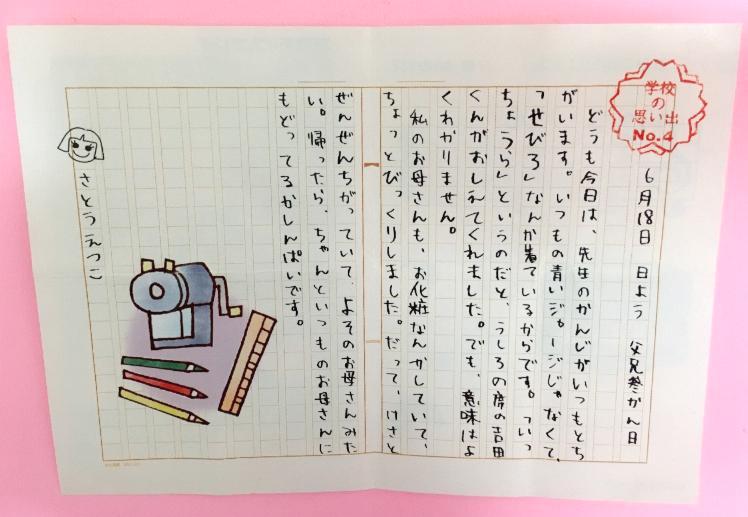 学校
の
思い出
No.4
6月18日 日よう 父兄参かん日
どうも今日は、先生のかんじがいつもとち
がいます。いつもの青いジャージじゃなくて、
「せびろ」なんか着ているからです。「いっ
ちょうら」というのだと、うしろの席の吉田
くんがおしえてくれました。でも、意味はよ
くわかりません。
私のお母さんも、お化粧なんかしていて、
ちょっとびっくりしました。だって、けさと
ぜんぜんちがっていて、よそのお母さんみた
い。帰ったら、ちゃんといつものお母さんに
もどってるかしんぱいです。
さとうえつこ